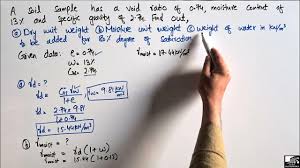 A soil sample has a void ratio of 0.74, moisture content of
13% and specific gravity of 2.74 Find out,
ⓐ Dry unit weight ⓑ Moisture unit weight ⓒ weight of water in kN/m³
to be added for 80% degree of saturation.
Given data: e = 0.74, γmoist = 17.44 kN/m³
w = 13%
G = 2.74
ⓐ γd = ?
γd = Gs γw / 1+e
γd = 2.74 × 9.81 /
γd = 15.44 kN/m³
ⓑ γmoist = ?
γmoist = γd (1+w)
γmoist = 15.44 (1+0.13)